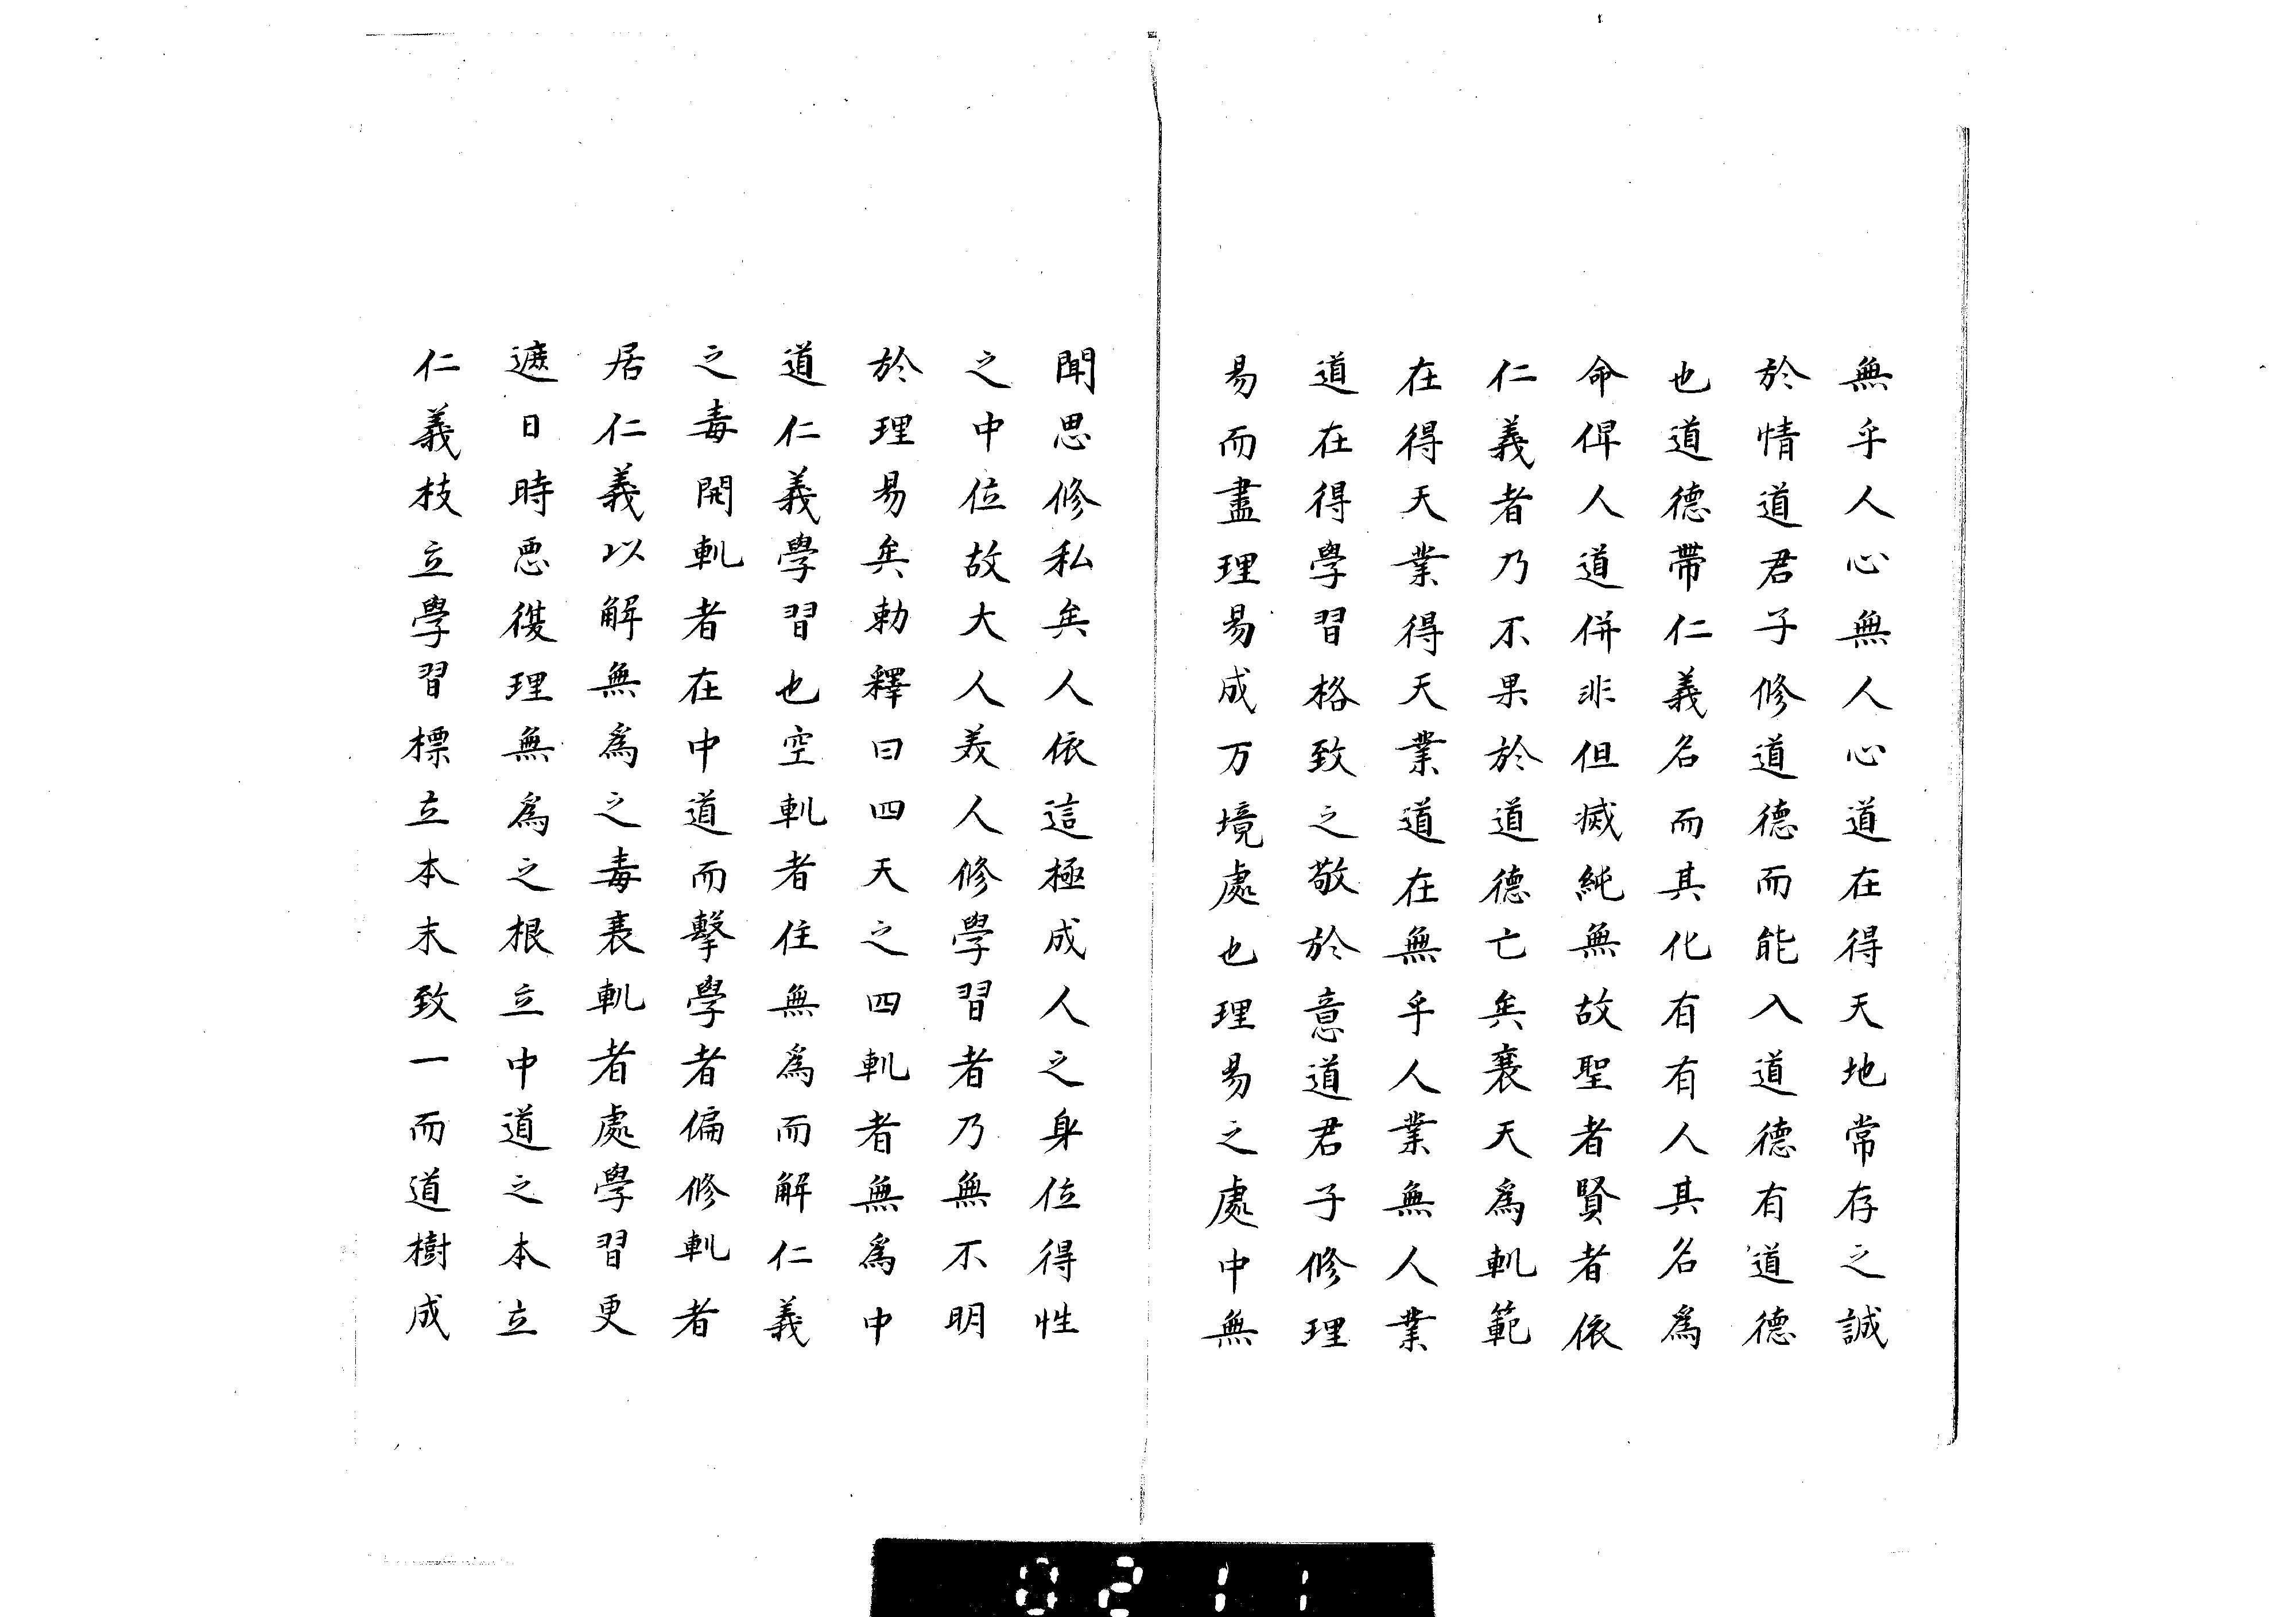 無乎人心無人心道在得天地常存之誠
於情道君子修道德而能入道德有道德
也道德帶仁義名而其化有有人其名為
命俾人道併非但滅純無故聖者賢者依
仁義者乃不果於道德亡矣天為軌範
在得天業得天業道在無乎人業無人業
道在得學習格致之敬於意道君子修理
易而盡理易成万境處也理易之處中無
聞思修私矣人依這極成人之身位得性
之中位故大人美人修學習者乃無不明
於理易矣勅釋曰四天之四軌者無為中
道仁義學習也空軌者住無為而解仁義
之毒開軌者在中道而擊學者偏修軌者
居仁義以解無為之毒軌者處學習更
遮日時理無為之根立中道之本立
仁義枝立學習標立本末致一而道樹成
0211